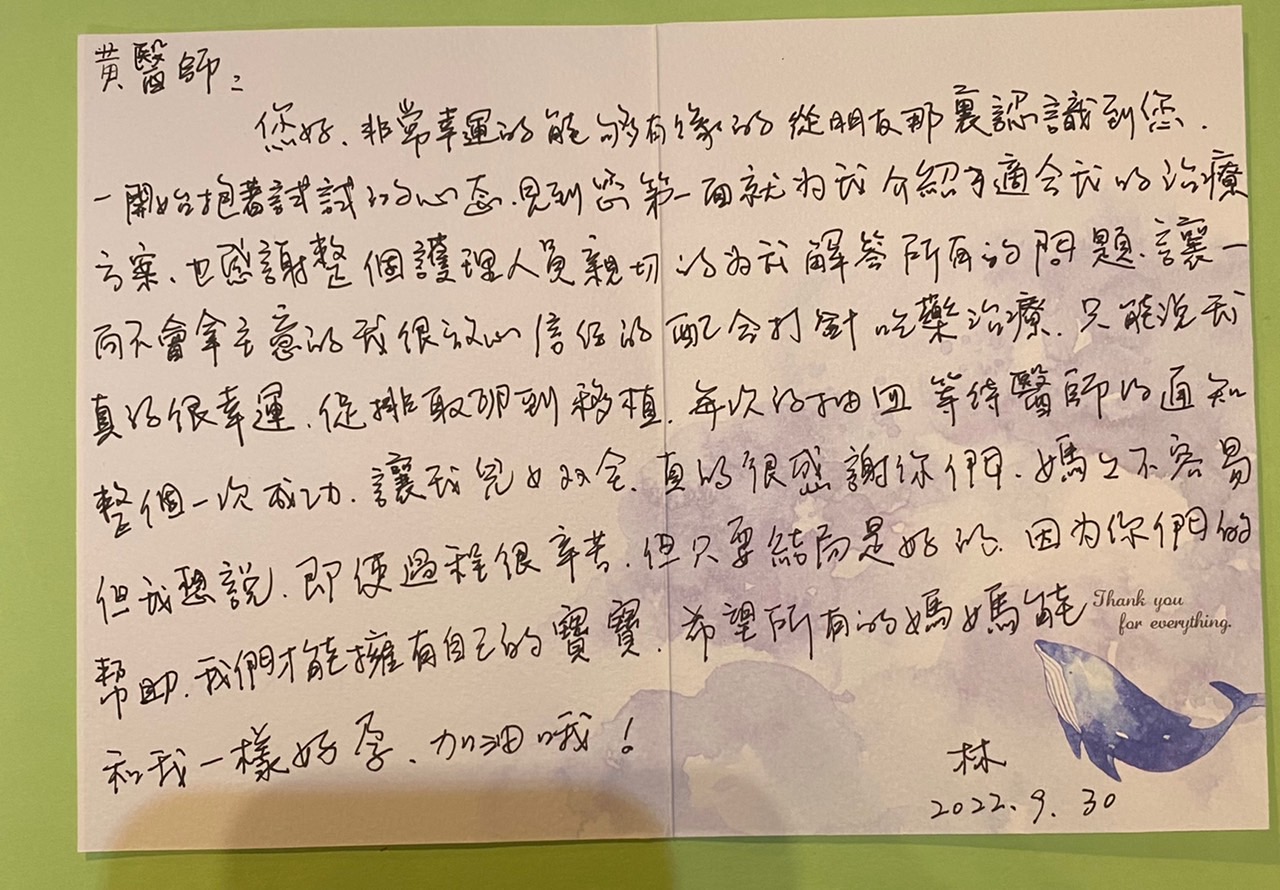 黃醫師：
您好、非常幸運的能夠有緣的從朋友那裏認識到您.
一開始抱著試試的心态.見到您第一面就为我介紹了適合我的治療
方案、也感謝整個護理人員親切的为我解答所有的問題.讓一
向不會拿主意的我很放心信任的配合打針吃藥治療.只能说我
真的很幸運.從排取卵到移植.每次的抽血等待醫師的通知
整個一次成功.讓我兒女双全.真的很感謝你們.媽々不容易
但我想說、即使過程很辛苦.但只要結局是好的.因为你們的
幫助.我們才能擁有自己的寶寶.希望所有的媽媽能
Thank you
for everything.
和我一樣好孕、加油哦！
林
2022.9.30